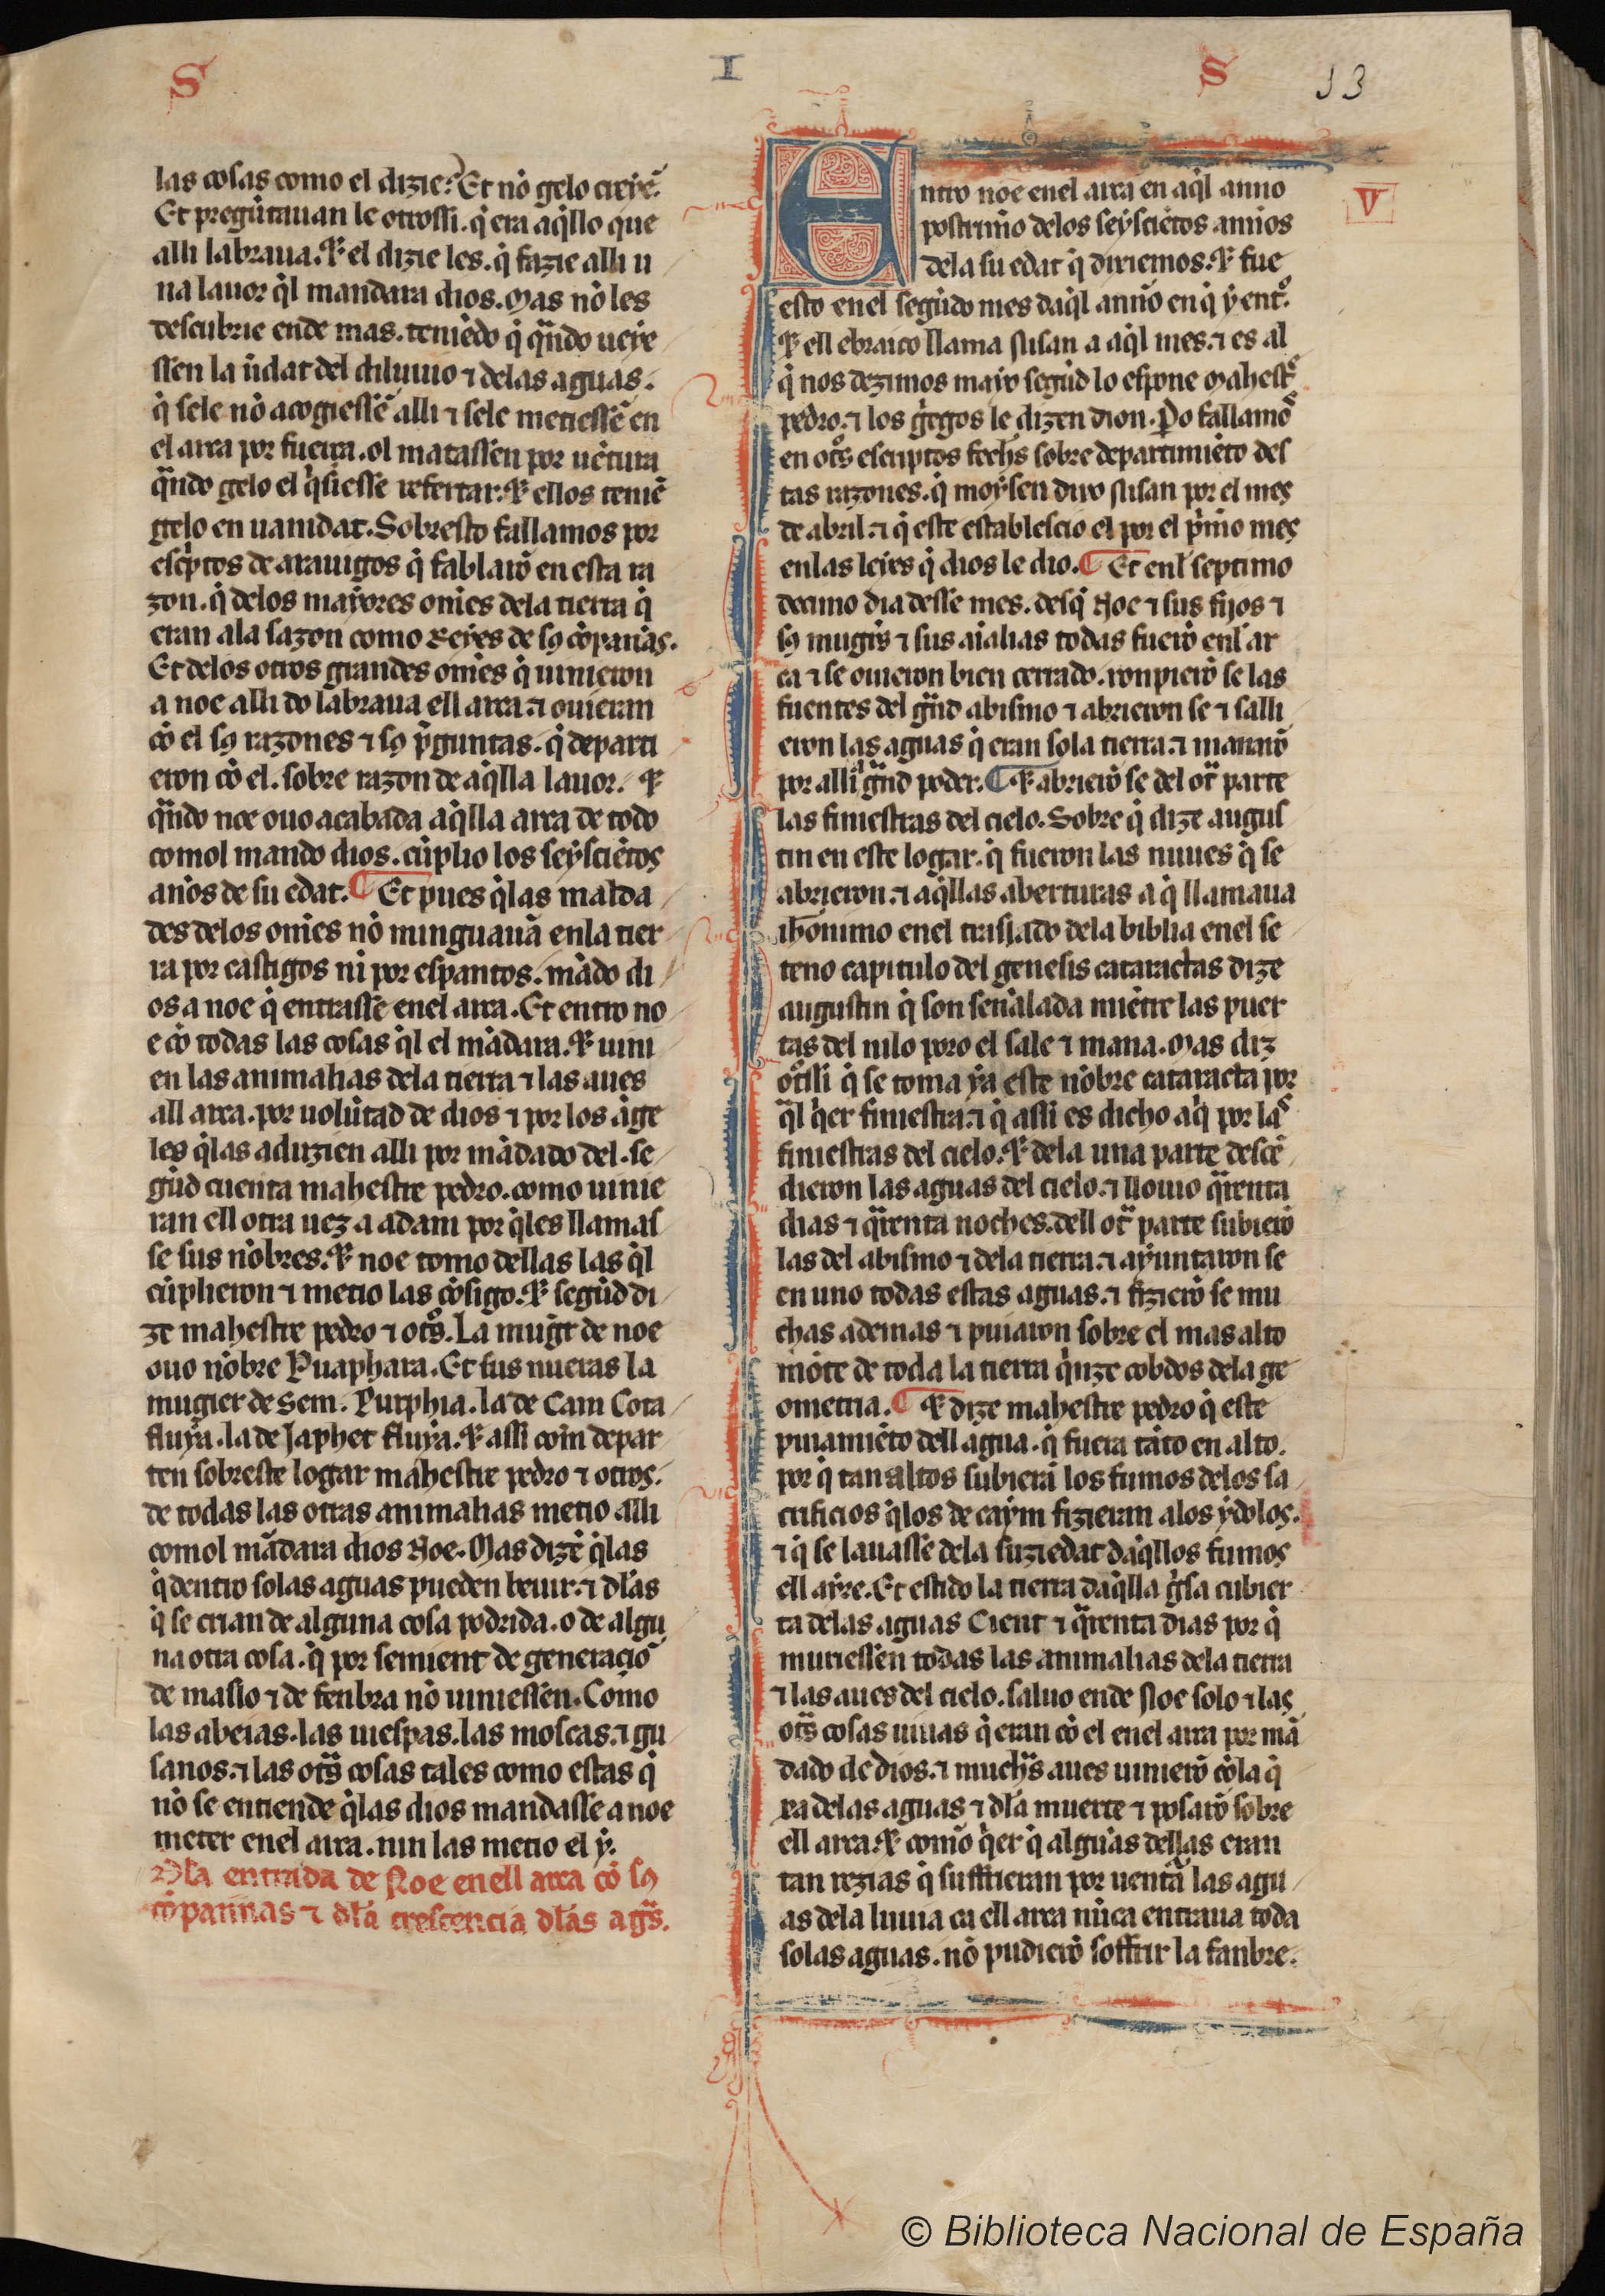 S I S 13
las cosas como el dizie. Et nõ gelo creyẽ.
Et pregũtauan le otrossi. q̃ era aq̃llo que
alli labraua. ⁊ el dizie les. q̃ fazie alli u
na lauor q̃l mandara dios. Mas nõ les
descubrie ende mas. teniẽdo q̃ q̃ndo ueye
ssen la ũdat del diluuio ⁊ delas aguas.
q̃ sele nõ acogiessẽ alli ⁊ sele metiessẽ en
el arca por fuerça. ol matassen por uẽtura
q̃ndo gelo el q̃siesse refertar. ⁊ ellos teniẽ
gelo en uanidat. Sobresto fallamos por
esc̃ptos de arauigos q̃ fablarõ en esta ra
zon. q̃ delos mayores om̃es dela tierra q̃
eran ala sazon como Reyes de sꝯ cõpan̄as.
Et delos otros grandes om̃es q̃ uinieron
a noe alli do labraua ell arca. ⁊ ouieran
cõ el sꝯ razones ⁊ sꝯ p̃guntas. q̃ departi
eron cõ el. sobre razon de aq̃lla lauor. ⁊
q̃ndo noe ouo acabada aq̃lla arca de todo
comol mando dios. cũplio los seysciẽtos
an̄os de su edat. ¶ Et pues q̃las malda
des delos om̃es nõ minguauã enla tier
ra por castigos ni por espantos. mãdo di
os a noe q̃ entrasse enel arca. Et entro no
e cõ todas las cosas q̃l el mãdara. ⁊ uini
en las animalias dela tierra ⁊ las aues
all arca. por uolũtad de dios ⁊ por los ãge
les q̃las aduzien alli por mãdado del. se
gũd cuenta mahestre pedro. como uinie
ran ell otra uez a adam por q̃les llamas
se sus nõbres. ⁊ noe tomo dellas las q̃l
cũplieron ⁊ metio las cõsigo. ⁊ segũd di
ze mahestre pedro ⁊ ot̃s. La mug̃r de noe
ouo nõbre Puaphara. Et sus nueras la
mugier de Sem. Purphia. la de Cam Cota
fluya. la de Japhet fluya. ⁊ assi com̃ depar
ten sobreste logar mahestre pedro ⁊ otros.
de todas las otras animalias metio alli
comol mãdara dios Noe. Mas dizẽ q̃las
q̃ dentro solas aguas pueden beuir. ⁊ dl̃as
q̃ se crian de alguna cosa podrida. o de algu
na otra cosa. q̃ por semient de generaciõ
de maslo ⁊ de fenbra nõ uiniessen. Como
las abeias. las uiespas. las moscas. ⁊ gu
sanos. ⁊ las ot̃s cosas tales como estas q̃
nõ se entiende q̃las dios mandasse a noe
meter enel arca. nin las metio el y.
Dl̃a entrada de Noe enell arca cõ sꝯ
cõpannas ⁊ dl̃a crescencia dl̃as ag̃s.
Entro noe enel arca en aq̃l anno
postrim̃o delos seysciẽtos annos
dela su edat q̃ dixiemos. ⁊ fue
esto enel segũdo mes daq̃l anno en q̃ y ent̃.
⁊ ell ebraico llama sisan a aq̃l mes. ⁊ es al
q̃ nos dezimos mayo segũd lo espone Mahestr̃
pedro. ⁊ los g̃egos le dizen dion. Po fallamõs
en ot̃s escriptos fech̃s sobre departimiẽto des
tas razones. q̃ moysen dixo sisan por el mes
de abril. ⁊ q̃ este establescio el por el p̃m̃o mes
enlas leyes q̃ dios le dio. ¶ Et enl̃ septimo
decimo dia desse mes. desq̃ Noe ⁊ sus fijos ⁊
sꝯ mugĩs ⁊ sus aĩalias todas fuerõ enl̃ ar
ca ⁊ se ouieron bien cerrado. ronpierõ se las
fuentes del g̃nd abismo ⁊ abrieron se ⁊ salli
eron las aguas q̃ eran sola tierra. ⁊ manarõ
por alli g̃nd poder. ¶ ⁊ abrierõ se del ot̃ parte
las finiestras del cielo. Sobre q̃ dize augus
tin en este logar. q̃ fueron las nuues q̃ se
abrieron. ⁊ aq̃llas aberturas a q̃ llamaua
ih̃onimo enel traslado dela biblia enel se
teno capitulo del genesis cataractas dize
augustin q̃ son sen̄alada miẽtre las puer
tas del nilo poro el sale ⁊ mana. Mas diz
ot̃ssi q̃ se toma ya este nõbre cataracta por
q̃l q̃er finiestra. ⁊ q̃ assi es dicho aq̃ por las
finiestras del cielo. ⁊ dela una parte descẽ
dieron las aguas del cielo. ⁊ llouio q̃renta
dias ⁊ q̃renta noches. dell ot̃ parte subierõ
las del abismo ⁊ dela tierra. ⁊ ayuntaron se
en uno todas estas aguas. ⁊ fizierõ se mu
chas ademas ⁊ puiaron sobre el mas alto
mõte de toda la tierra q̃nze cobdos dela ge
ometria. ¶ ⁊ dize mahestre pedro q̃ este
puiamiẽto dell agua. q̃ fuera tãto en alto.
por q̃ tan altos subierã los fumos delos sa
crificios q̃los de caym fizieran alos ydolos.
⁊ q̃ se lauasse dela suziedat daq̃llos fumos
ell ayre. Et estido la tierra daq̃lla g̃sa cubier
ta delas aguas Cient ⁊ q̃renta dias por q̃
muriessen todas las animalias dela tierra
⁊ las aues del cielo. saluo ende Noe solo ⁊ las
ot̃s cosas uiuas q̃ eran cõ el enel arca por mã
dado de dios. ⁊ much̃s aues uinierõ cõla q̃
xa delas aguas ⁊ dl̃a muerte ⁊ posarõ sobre
ell arca. ⁊ como q̃er q̃ algunas dellas eran
tan rezias q̃ suffrieran por uentã las agu
as dela lluuia ca ell arca nũca entraua toda
solas aguas. nõ pudierõ soffrir la fanbre.
V
© Biblioteca Nacional de España